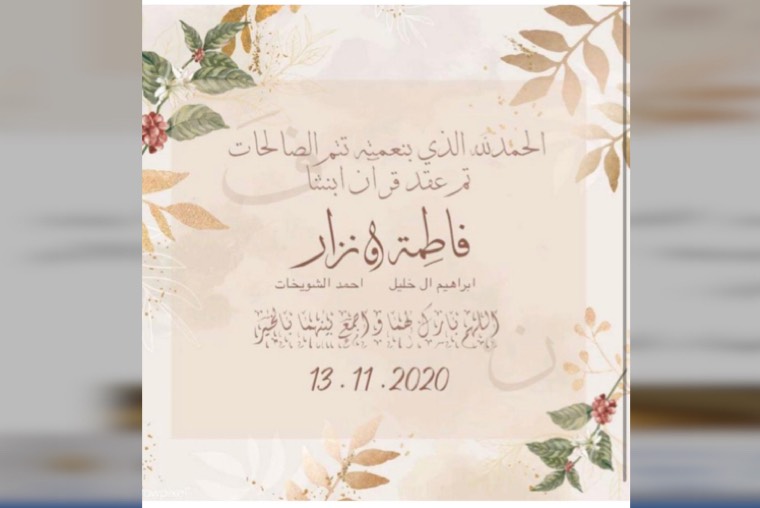 الحمدلله الذي بنعمته تتم الصالحات
تم عقد قران ابنتنا
فاطمة و نزار
ابراهيم ال خليل    احمد الشويخات
اللهم بارك لهما و اجمع بينهما بالخير
13 . 11 . 2020
ف
ن